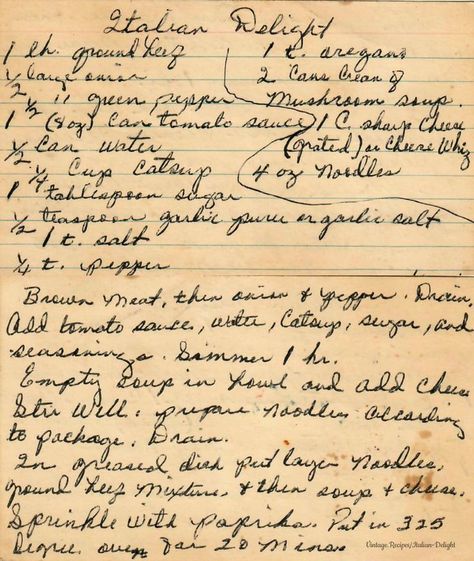 Italian Delight
1 lb. ground beef
½ large onion
½ " green pepper
1 (8oz) can tomato sauce
½ can water
¼ cup catsup
1 tablespoon sugar
½ teaspoon garlic puree or garlic salt
1 t. salt
¼ t. pepper
1 t. oregano
2 cans cream of
mushroom soup.
1 C. sharp cheese
(grated) or Cheese Whiz
4 oz noodles
Brown meat, then onion & pepper. Drain,
Add tomato sauce, water, catsup, sugar, and
seasonings. Simmer 1 hr.
Empty soup in bowl and add cheese
Stir well. prepare noodles according
to package. Drain.
In greased dish put layer noodles,
ground beef mixture, & then soup & cheese.
Sprinkle with paprika. Put in 325
degree oven for 20 mins.
Vintage.Recipes/Italian-Delight